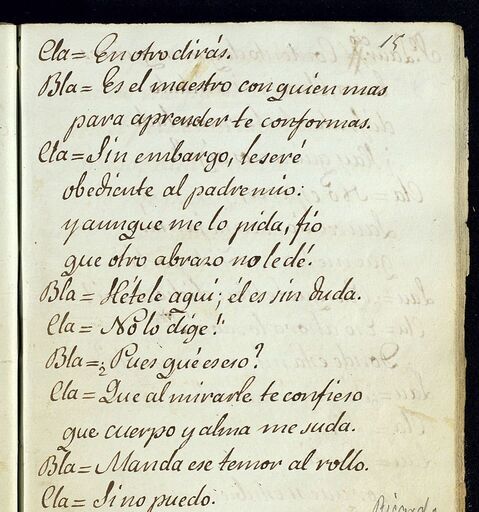 15
Cla= En otro dirás.
Bla= Es el maestro con quien mas
para aprender te conformas.
Cla= Sin embargo, le seré
obediente al padre mio:
y aunque me lo pida, fio
que otro abrazo no le dé.
Bla= Hétele aqui; él es sin duda.
Cla= No lo dige!
Bla= ¿Pues qué es eso?
Cla= Que al mirarle te confieso
que cuerpo y alma me suda.
Bla= Manda ese temor al rollo.
Cla= Si no puedo.